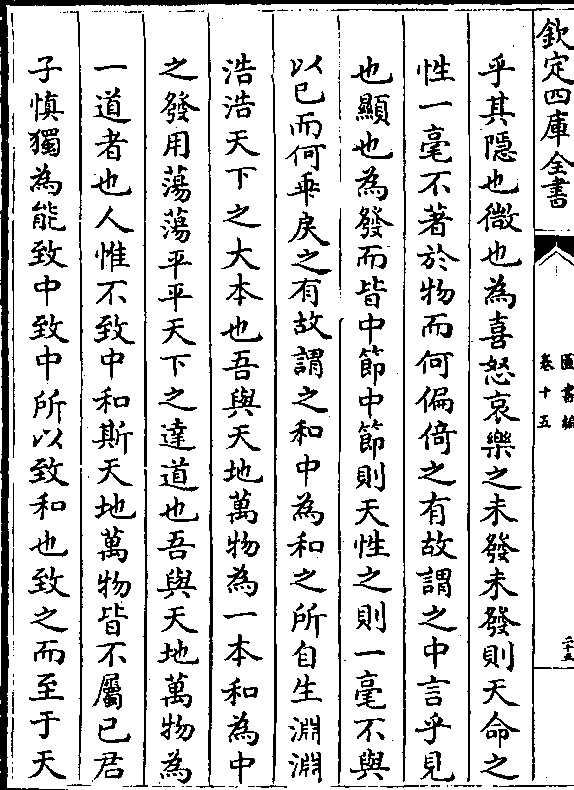 欽定四庫全書
圖書編
卷十五
二十五
乎其隱也微也為喜怒哀樂之未發未發則天命之
性一毫不著於物而何偏倚之有故謂之中言乎見
也顯也為發而皆中節中節則天性之則一毫不與
以已而何乖戾之有故謂之和中為和之所自生淵淵
浩浩天下之大本也吾與天地萬物為一本和為中
之發用蕩蕩平平天下之達道也吾與天地萬物為
一道者也人惟不致中和斯天地萬物皆不屬已君
子慎獨為能致中致中所以致和也致之而至于天